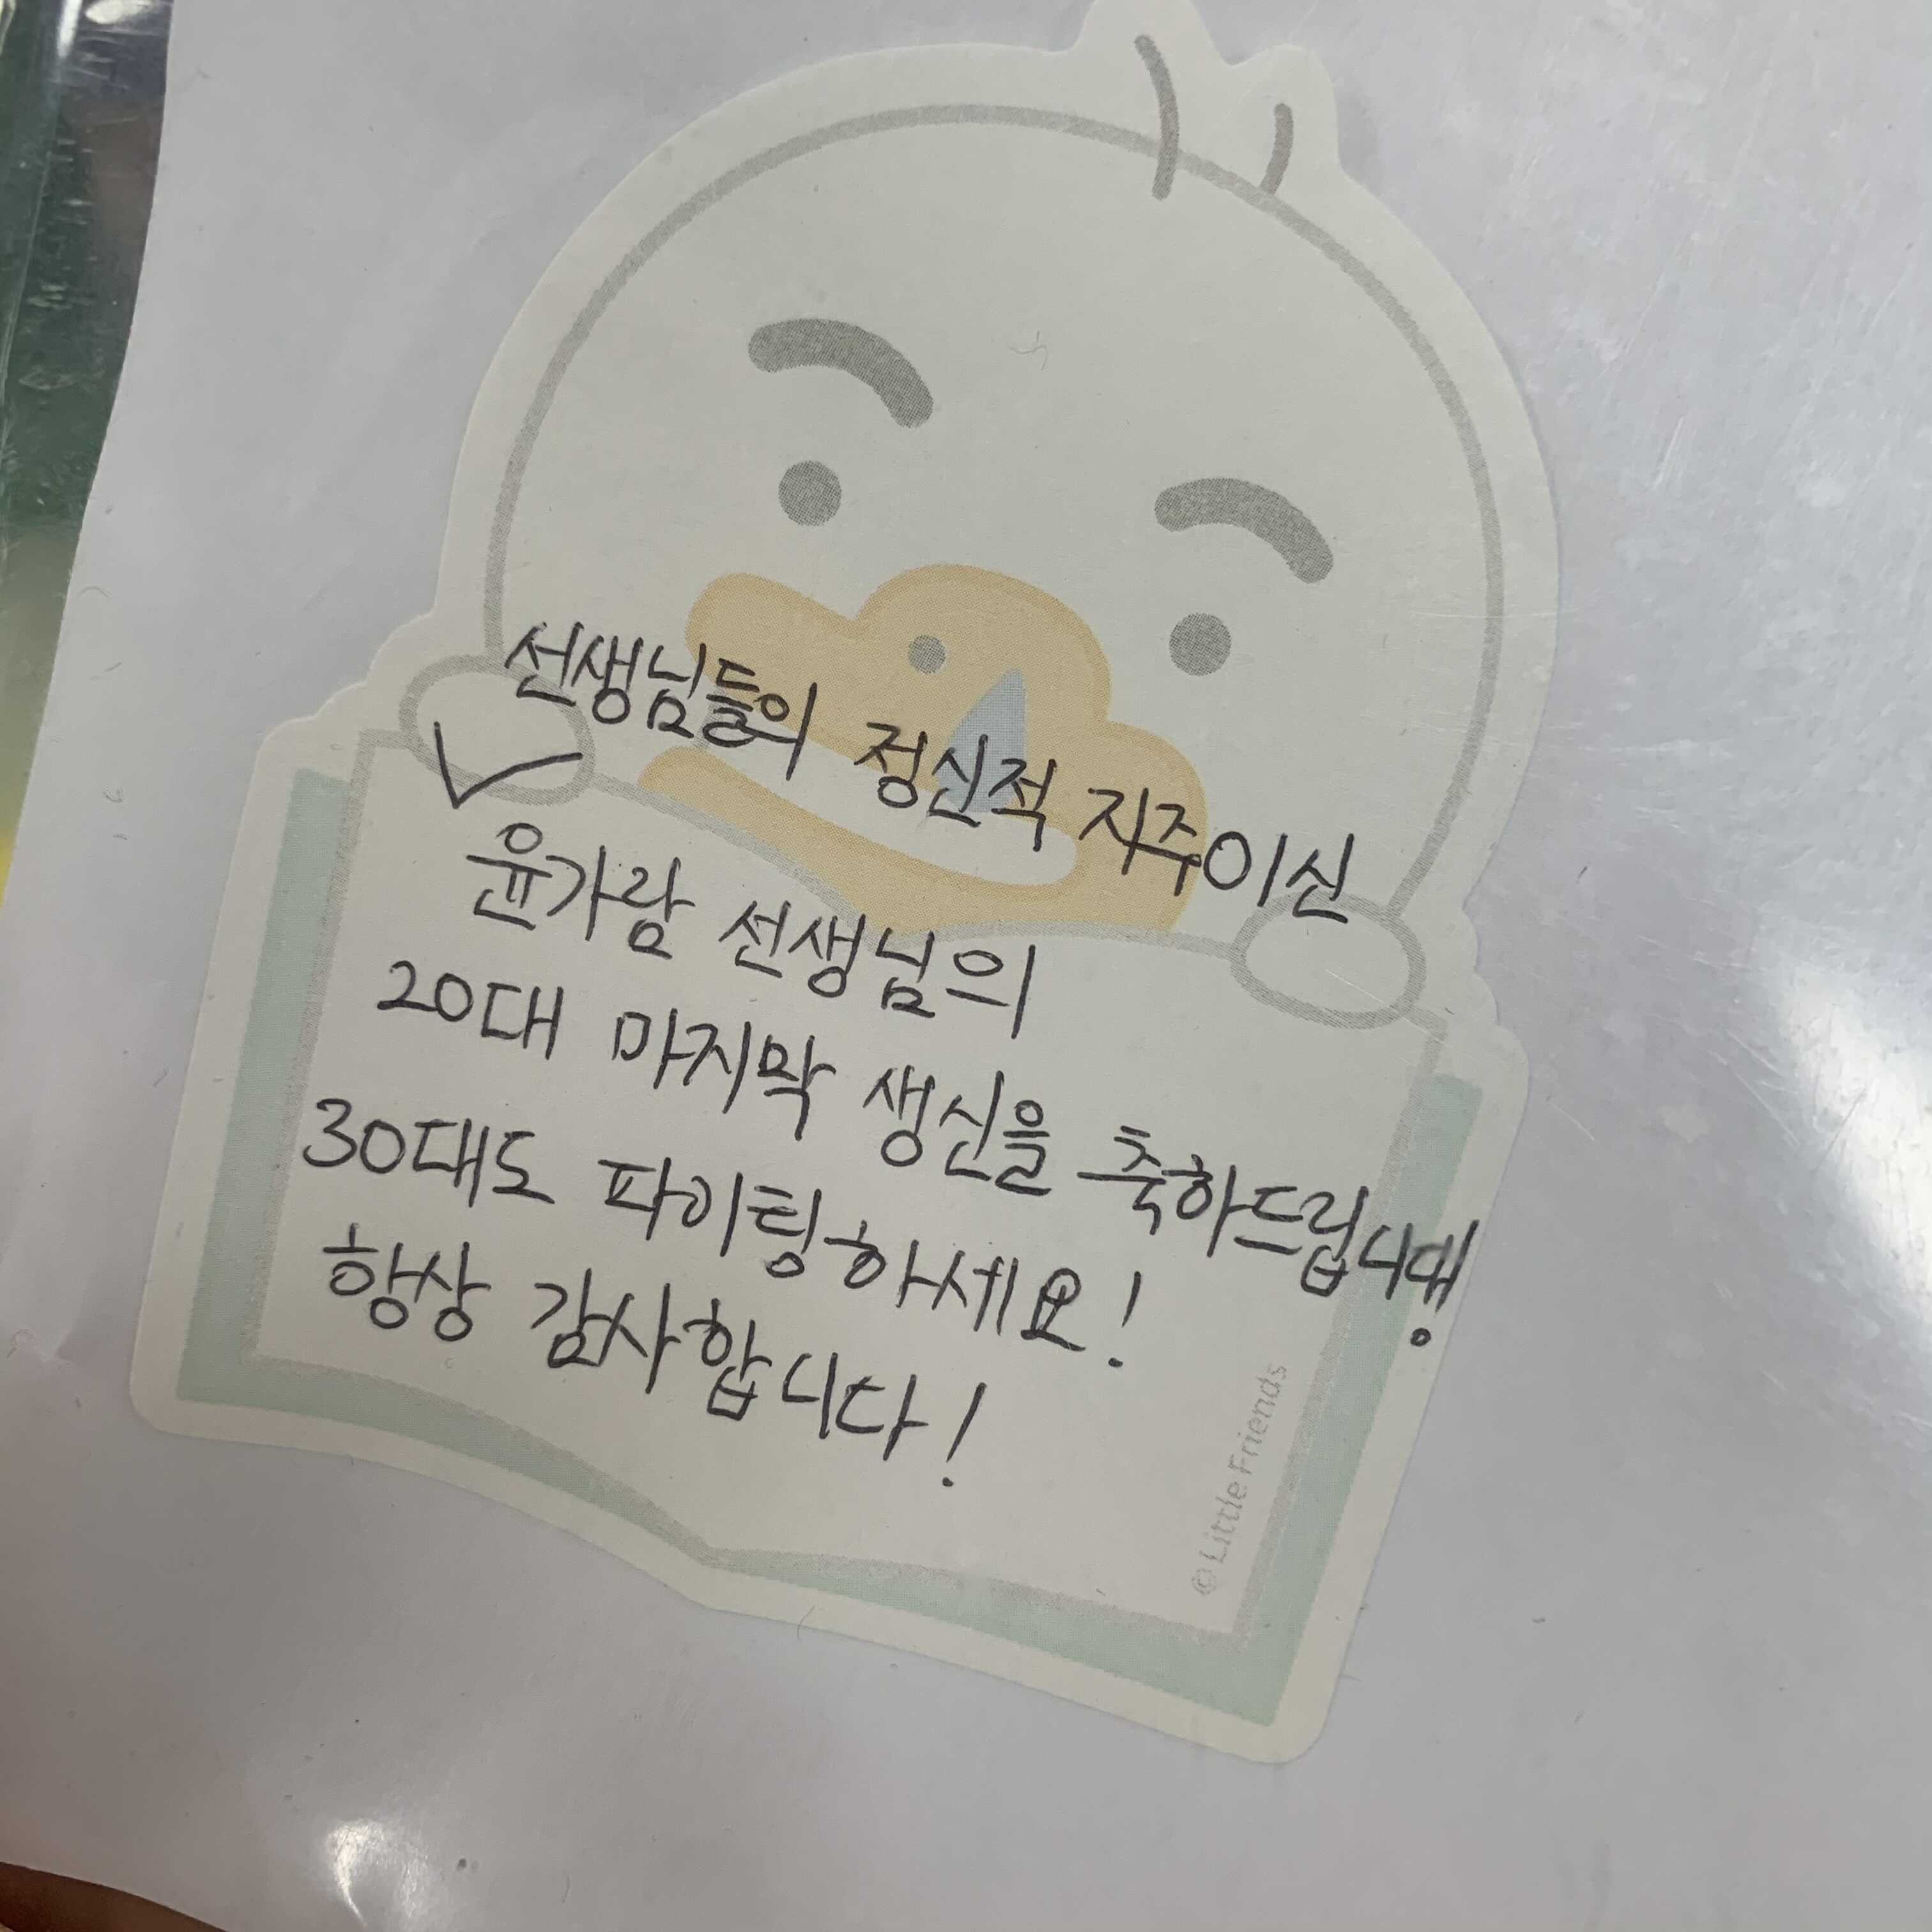 선생님들의 정신적 지주이신
윤가람 선생님의
20대 마지막 생신을 축하드립니다!
30대도 파이팅하세요!
항상 감사합니다!
© Little Friends